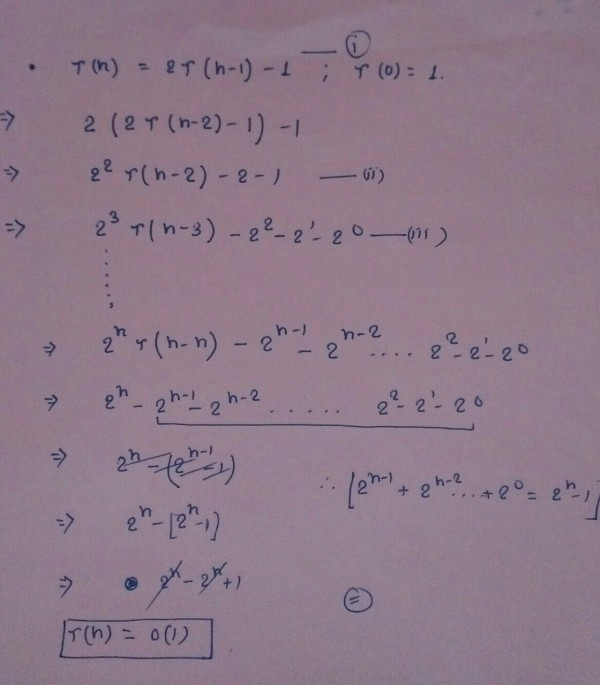 • T(n) = 2T(n-1) - 1 ; T(0) = 1. — (i)
⇒ 2 (2T(n-2) - 1) - 1
⇒ 2² T(n-2) - 2 - 1 — (ii)
⇒ 2³ T(n-3) - 2² - 2¹ - 2⁰ — (iii)
⇒ 2ⁿ T(n-n) - 2ⁿ⁻¹ - 2ⁿ⁻² .... 2² - 2¹ - 2⁰
⇒ 2ⁿ - 2ⁿ⁻¹ - 2ⁿ⁻² ...... 2² - 2¹ - 2⁰
⇒ 2ⁿ - (2ⁿ⁻¹ - 1)
∴ [2ⁿ⁻¹ + 2ⁿ⁻² ... + 2⁰ = 2ⁿ - 1]
⇒ 2ⁿ - [2ⁿ - 1]
⇒ 2ⁿ - 2ⁿ + 1
=
T(n) = O(1)